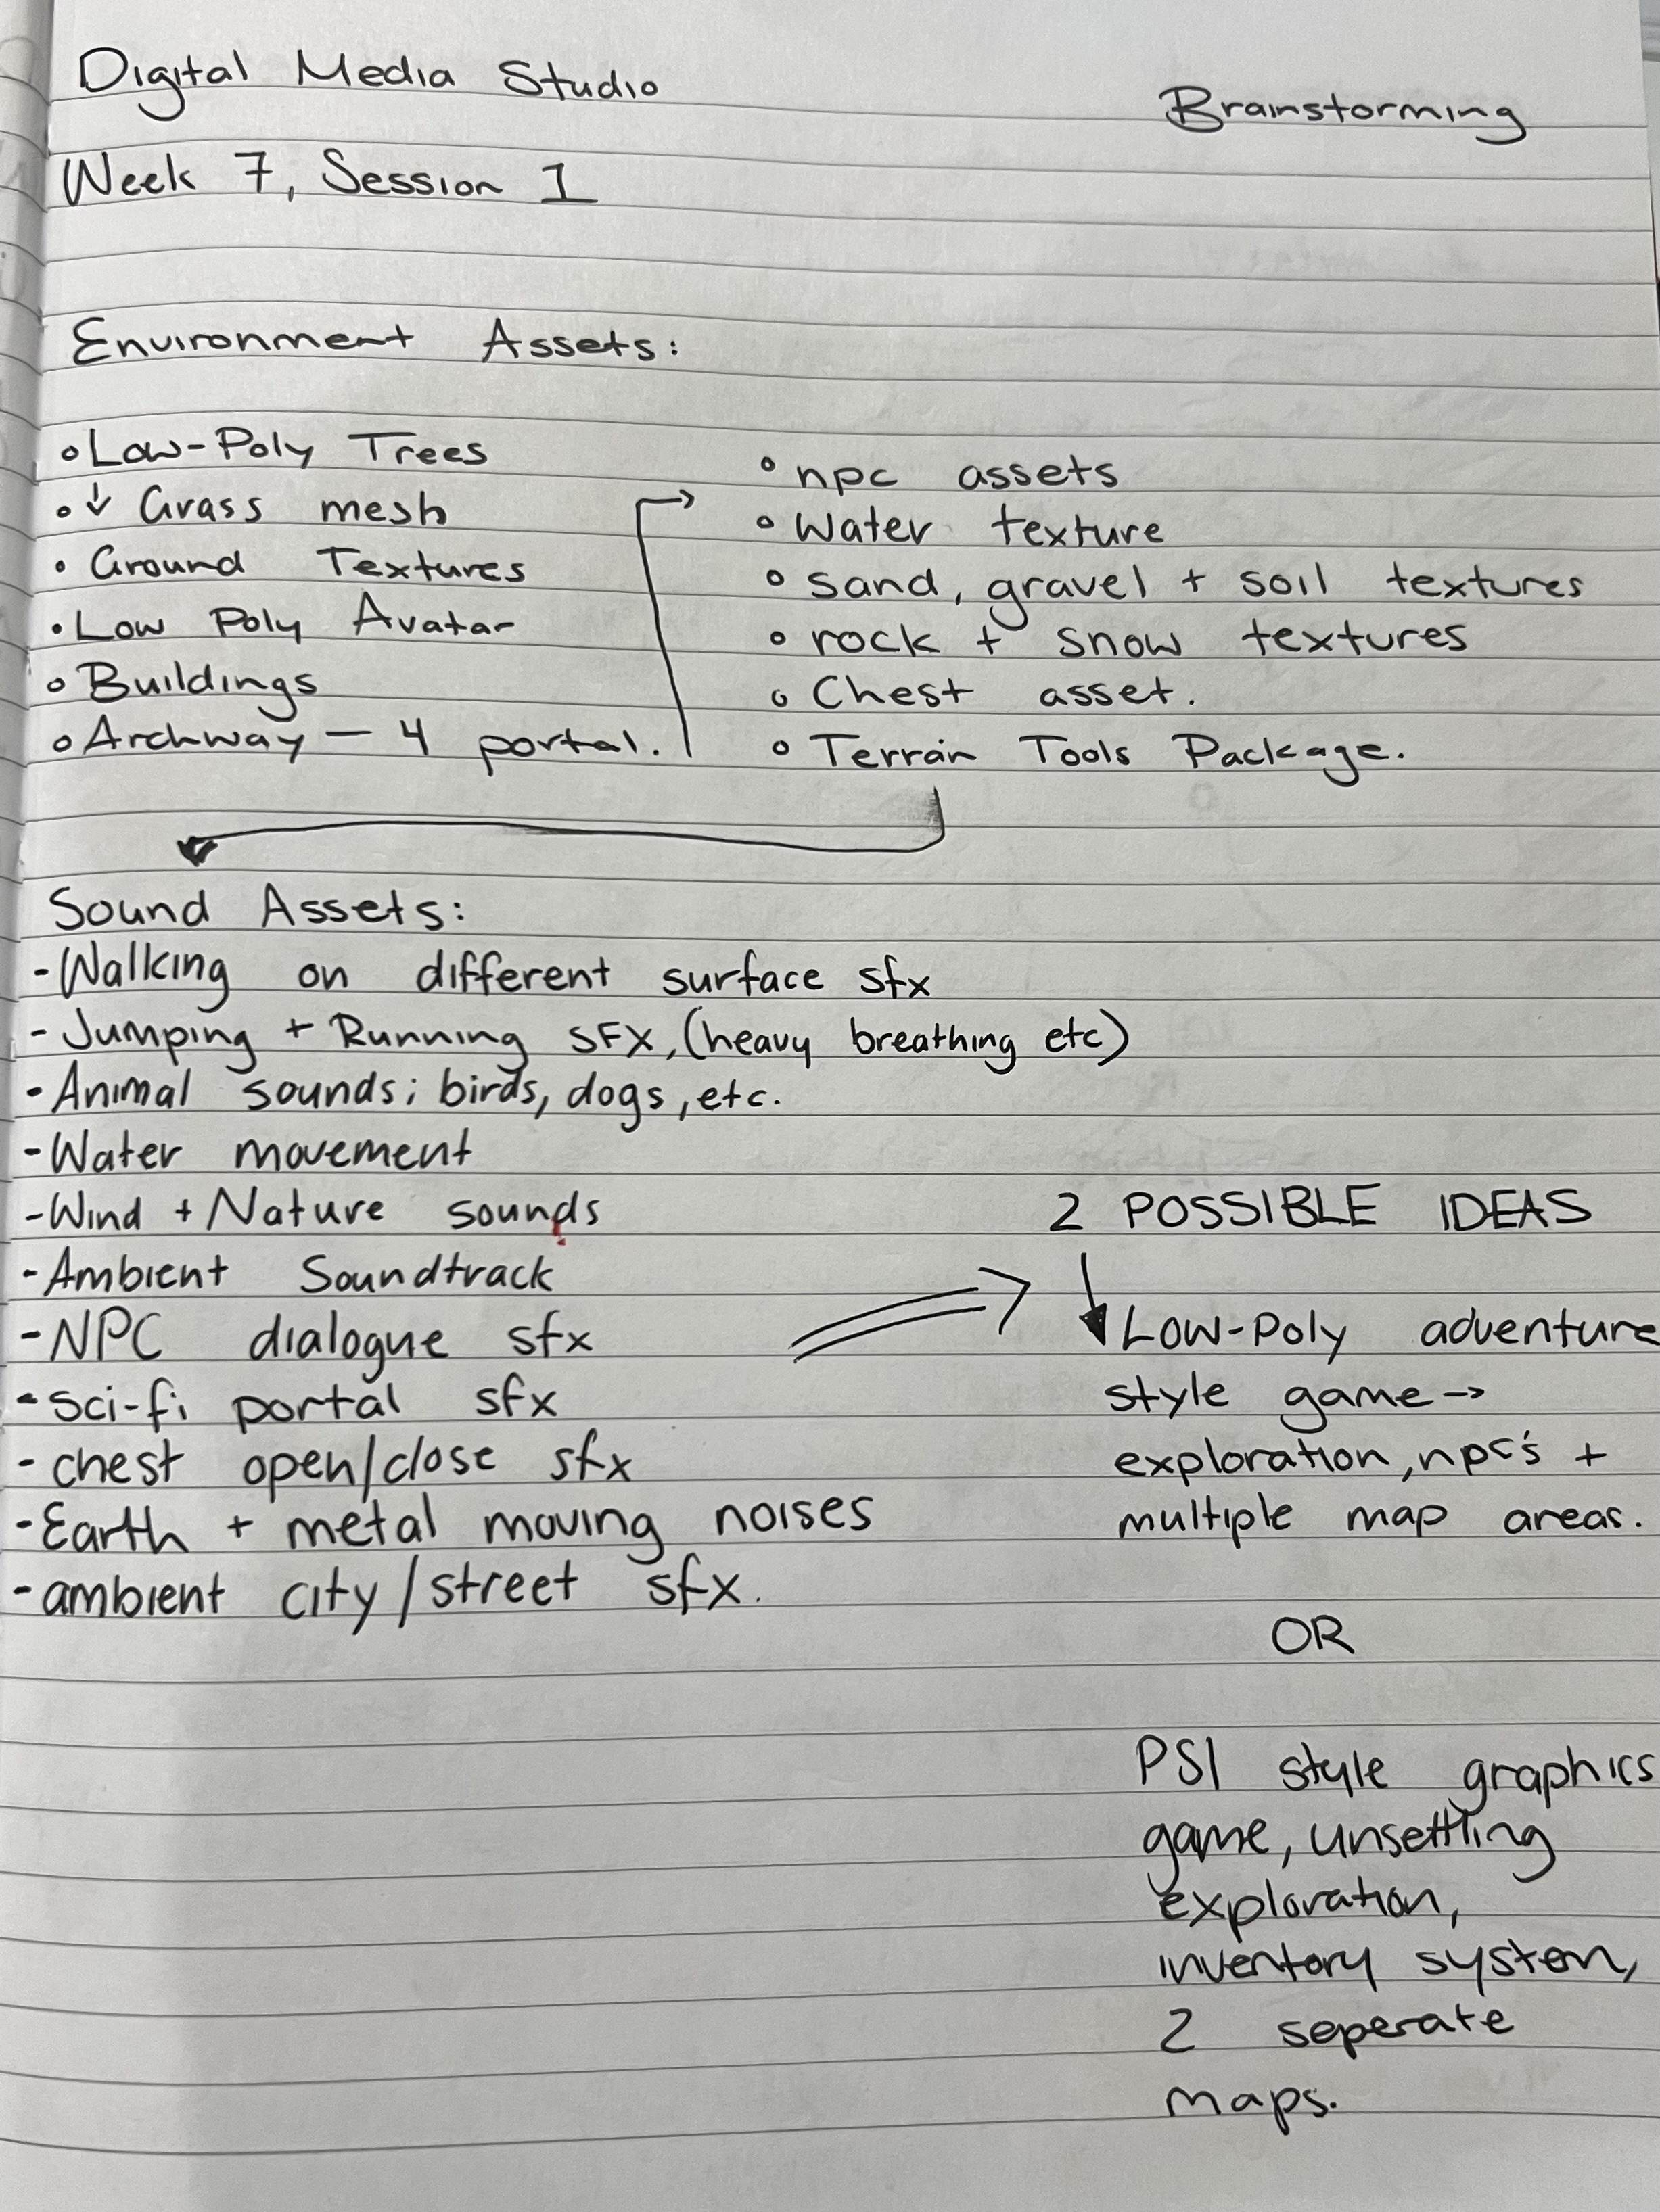 Digital Media Studio
Brainstorming
Week 7, Session 1
Environment Assets:
◦ Low-Poly Trees
◦ ↓ Grass mesh
◦ Ground Textures
• Low Poly Avatar
◦ Buildings
◦ Archway — 4 portal.
◦ npc assets
◦ Water texture
◦ sand, gravel + soil textures
◦ rock + snow textures
◦ Chest asset.
◦ Terrain Tools Package.
Sound Assets:
- Walking on different surface sfx
- Jumping + Running SFX, (heavy breathing etc)
- Animal sounds; birds, dogs, etc.
- Water movement
- Wind + Nature sounds
- Ambient Soundtrack
- NPC dialogue sfx
- sci-fi portal sfx
- chest open/close sfx
- Earth + metal moving noises
- ambient city/street sfx.
2 POSSIBLE IDEAS
Low-Poly adventure
style game →
exploration, npc's +
multiple map areas.
OR
PS1 style graphics
game, unsettling
exploration,
inventory system,
2 seperate
maps.